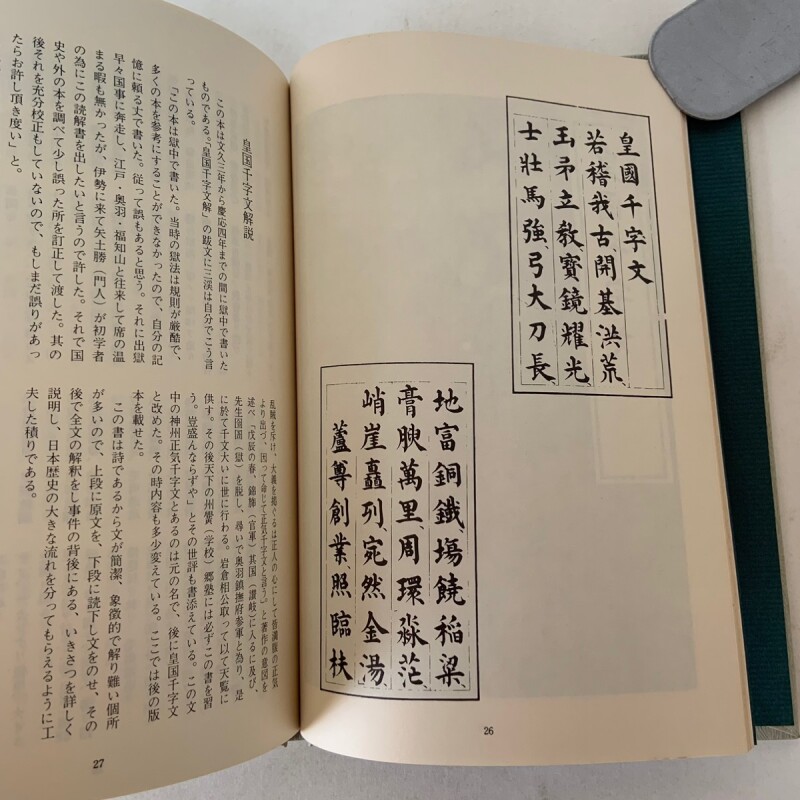 皇國千字文
若稽我古開基洪荒
玉矛立教寶鏡耀光
士壯馬強弓大刀長
地富銅鐵塲饒稲粱
膏腴萬里周環淼茫
峭崖矗列宛然金湯
蘆蓴創業照臨扶
26
皇国千字文解説
この本は文久三年から慶応四年までの間に獄中で書いた
ものである。「皇国千字文解」の跋文に三渓は自分でこう言
っている。
「この本は獄中で書いた。当時の獄法は規則が厳酷で、
多くの本を参考にすることができなかったので、自分の記
憶に頼る丈で書いた。従って誤もあると思う。それに出獄
早々国事に奔走し、江戸・奥羽・福知山と往来して席の温
まる暇も無かったが、伊勢に来て矢土勝(門人)が初学者
の為にこの読解書を出したいと言うので許した。それで国
史や外の本を調べて少し誤った所を訂正して渡した。其の
後それを充分校正もしていないので、もしまだ誤りがあっ
たらお許し頂き度い」と。
乱賊を斥け、大義を掲ぐるは正人の心にして皆満腹の正気
より出づ、因って命じて正気千字文と言う」と著作の意図を
述べ「戊辰の春、錦旆(官軍)其国(讃岐)に入るに及び、
先生囹圄(獄)を脱し、尋いで奥羽鎮撫府参軍と為り、是
に於て千文大いに世に行わる。岩倉相公取って以て天覧に
供す。その後天下の州黌(学校)郷塾には必ずこの書を習
う。豈盛んならずや」とその世評も書添えている。この文
中の神州正気千字文とあるのは元の名で、後に皇国千字文
と改めた。その時内容も多少変えている。ここでは後の版
本を載せた。
この書は詩であるから文が簡潔、象徴的で解り難い個所
が多いので、上段に原文を、下段に読下し文をのせ、その
後で全文の解釈をし事件の背後にある、いきさつを詳しく
説明し、日本歴史の大きな流れを分ってもらえるように工
夫した積りである。
27